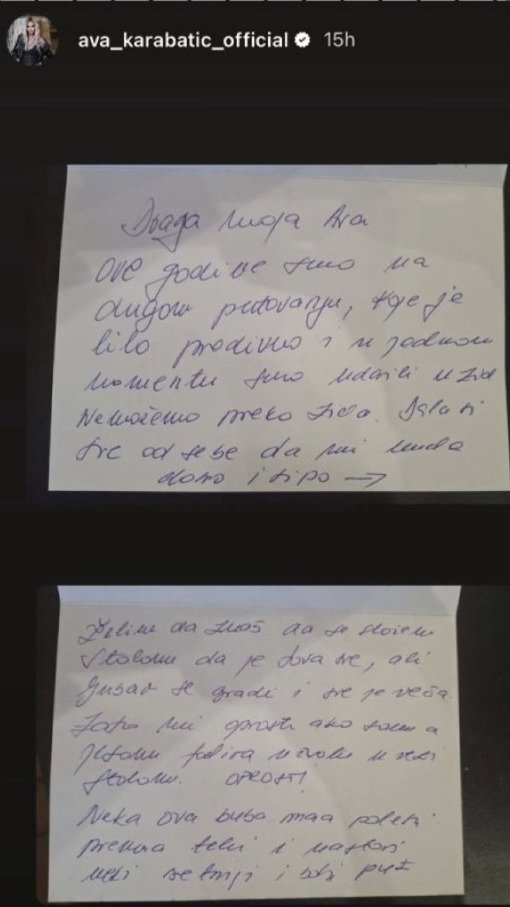 ava_karabatic_official 15h
Draga moja Ava
Ove godine smo na
dugom putovanju, koje je
bilo predivno i u jednom
momentu smo udarili u zid
Nemožemo preko zida. Dala si
sve od sebe da mi bude
dobro i lipo →
Želim da znaš da se slažem
s tobom da je dosta sve, ali
ljubav se gradi i sve je veća
Zato mi oprosti ako sam
u vezi
s tobom. OPROSTI!
Neka ova buba mara poleti
prema tebi i nastavi
neki sretniji i bolji put